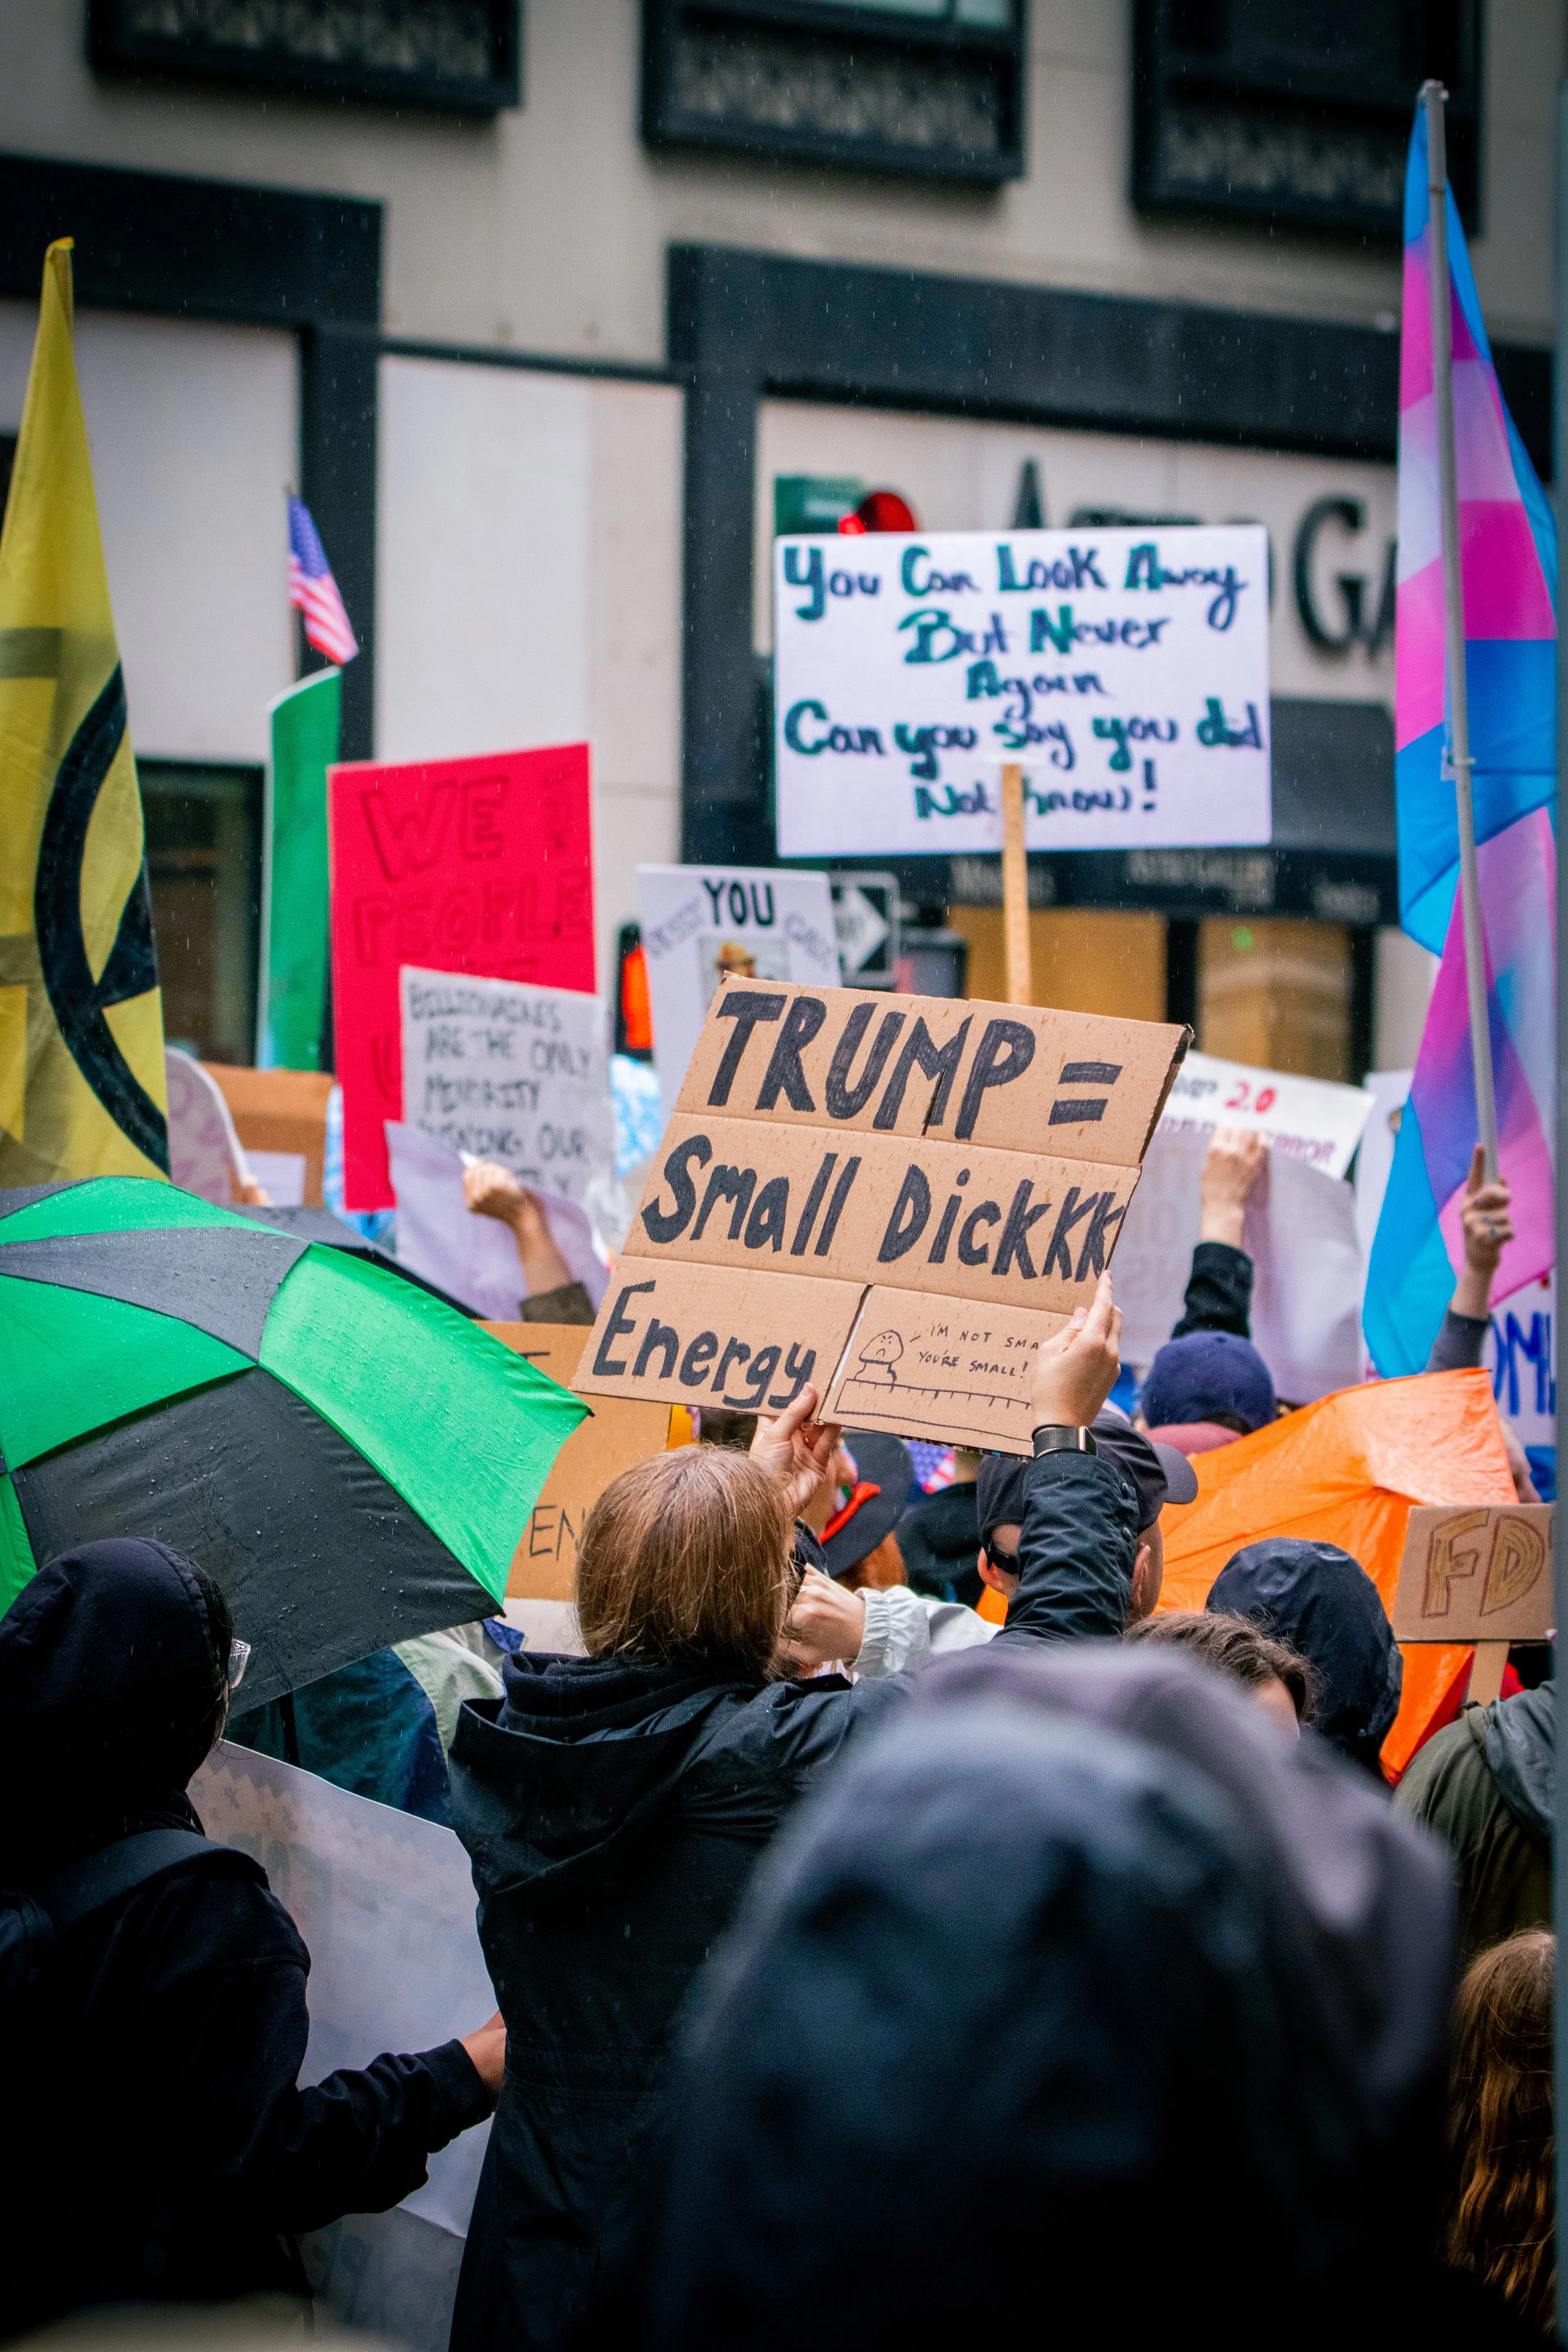 You Can Look Away
But Never
Again
Can you Say you did
Not know!
WE
PEOPLE
YOU
BILLIONAIRES
ARE THE ONLY
MINORITY
OUR
TRUMP =
Small Dickkk
Energy
I'M NOT SMA
YOU'RE SMALL!
2.0
EN
FD